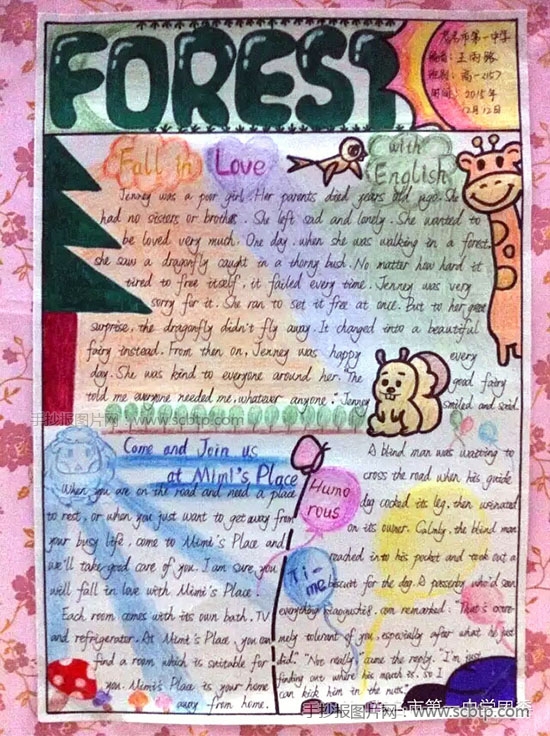 FOREST
茂名市第一中学
编者：王雨
班别：高一
时间：2015年
12月12日
Fall in Love with English
Jenney was a poor girl. Her parents died years old ago. She
had no sisters or brothes. She left sad and lonely. She wanted to
be loved very much. One day, when she was walking in a forest,
she saw a dragonfly caught in a thorny bush. No matter how hard it
tired to free itself, it failed every time. Jenney was very
sorry for it. She ran to set it free at once. But to her great
surprise, the dragonfly didn't fly away. It changed into a beautiful
fairy instead. From then on, Jenney was happy every
day. She was kind to everyone around her. "The good fairy
told me everyone needed me, whatever anyone." Jenney smiled and said.
手抄报图片网：www.scbtp.com
Come and Join us
at Mimi's Place
When you are on the road and need a place
to rest, or when you just want to get away from
your busy life, come to Mimi's Place and
we'll take good care of you. I am sure you
will fall in love with Mimi's Place.
Each room comes with its own bath, TV
and refrigerator. At Mimi's Place, you can
find a room which is suitable for
you. Mimi's Place is your home
away from home.
Humo
rous
Ti-
me
A blind man was waitting to
cross the road when his guide
dog cocked its leg, then urinated
on its owner. Calmly, the blind man
reached into his pocket and took out a
biscuit for the dog. A passerby who'd seen
everything remarked: "That's extre-
mely tolerant of you, especially after what he just
did." "Not really," came the reply. "I'm just
finding out where his mouth is, so I
can kick him in the nuts."
市第一中学团
手抄报图片网：www.scbtp.com